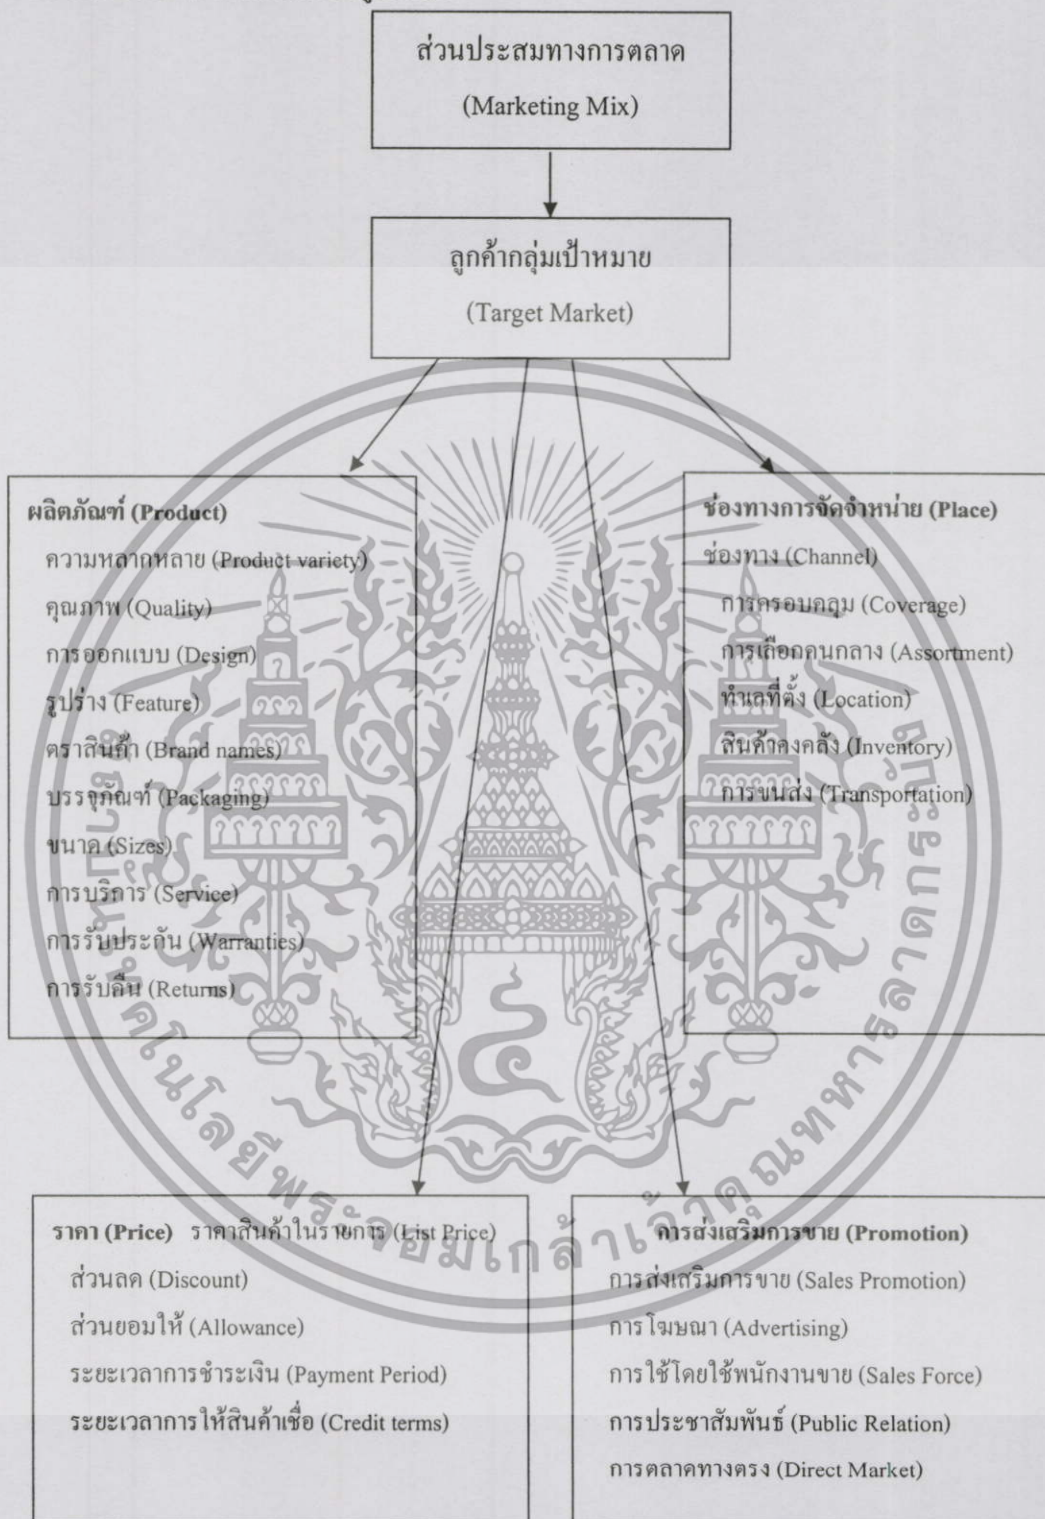 ส่วนประสมทางการตลาด
(Marketing Mix)
ลูกค้ากลุ่มเป้าหมาย
(Target Market)
ผลิตภัณฑ์ (Product)
ความหลากหลาย (Product variety)
คุณภาพ (Quality)
การออกแบบ (Design)
รูปร่าง (Feature)
ตราสินค้า (Brand names)
บรรจุภัณฑ์ (Packaging)
ขนาด (Sizes)
การบริการ (Service)
การรับประกัน (Warranties)
การรับคืน (Returns)
ช่องทางการจัดจำหน่าย (Place)
ช่องทาง (Channel)
การครอบคลุม (Coverage)
การเลือกคนกลาง (Assortment)
ทำเลที่ตั้ง (Location)
สินค้าคงคลัง (Inventory)
การขนส่ง (Transportation)
ราคา (Price) ราคาสินค้าในรายการ (List Price)
ส่วนลด (Discount)
ส่วนยอมให้ (Allowance)
ระยะเวลาการชำระเงิน (Payment Period)
ระยะเวลาการให้สินค้าเชื่อ (Credit terms)
การส่งเสริมการขาย (Promotion)
การส่งเสริมการขาย (Sales Promotion)
การโฆษณา (Advertising)
การใช้โดยใช้พนักงานขาย (Sales Force)
การประชาสัมพันธ์ (Public Relation)
การตลาดทางตรง (Direct Market)
สถาบันเทคโนโลยีพระจอมเกล้าเจ้าคุณทหารลาดกระบัง